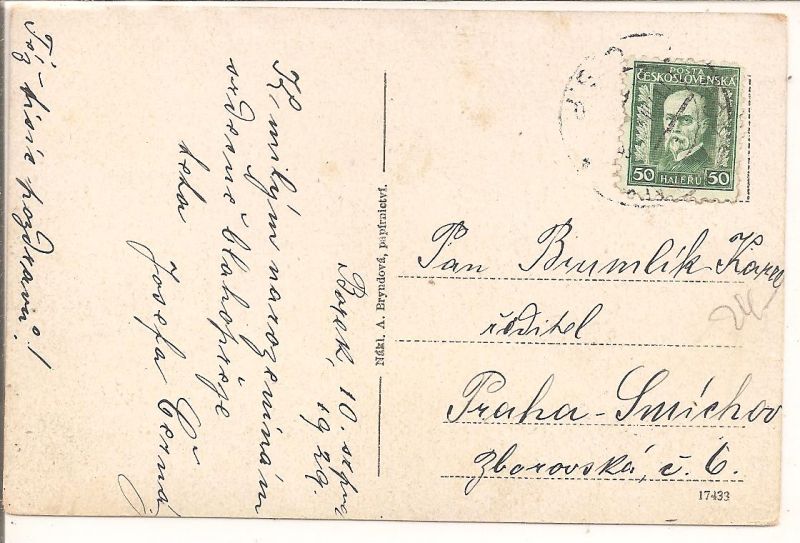 Borek, 10. srpna
1929.
K milým narozeninám
srdečně blahopřeje
teta
Josefa Černá
Též tisíc pozdravů!
Nákl. A. Bryndová, papírnictví.
POŠTA
ČESKOSLOVENSKÁ
50 HALÉŘŮ 50
Pan Brumlík Karel
ředitel
Praha-Smíchov
Zborovská, č. 6.
17433